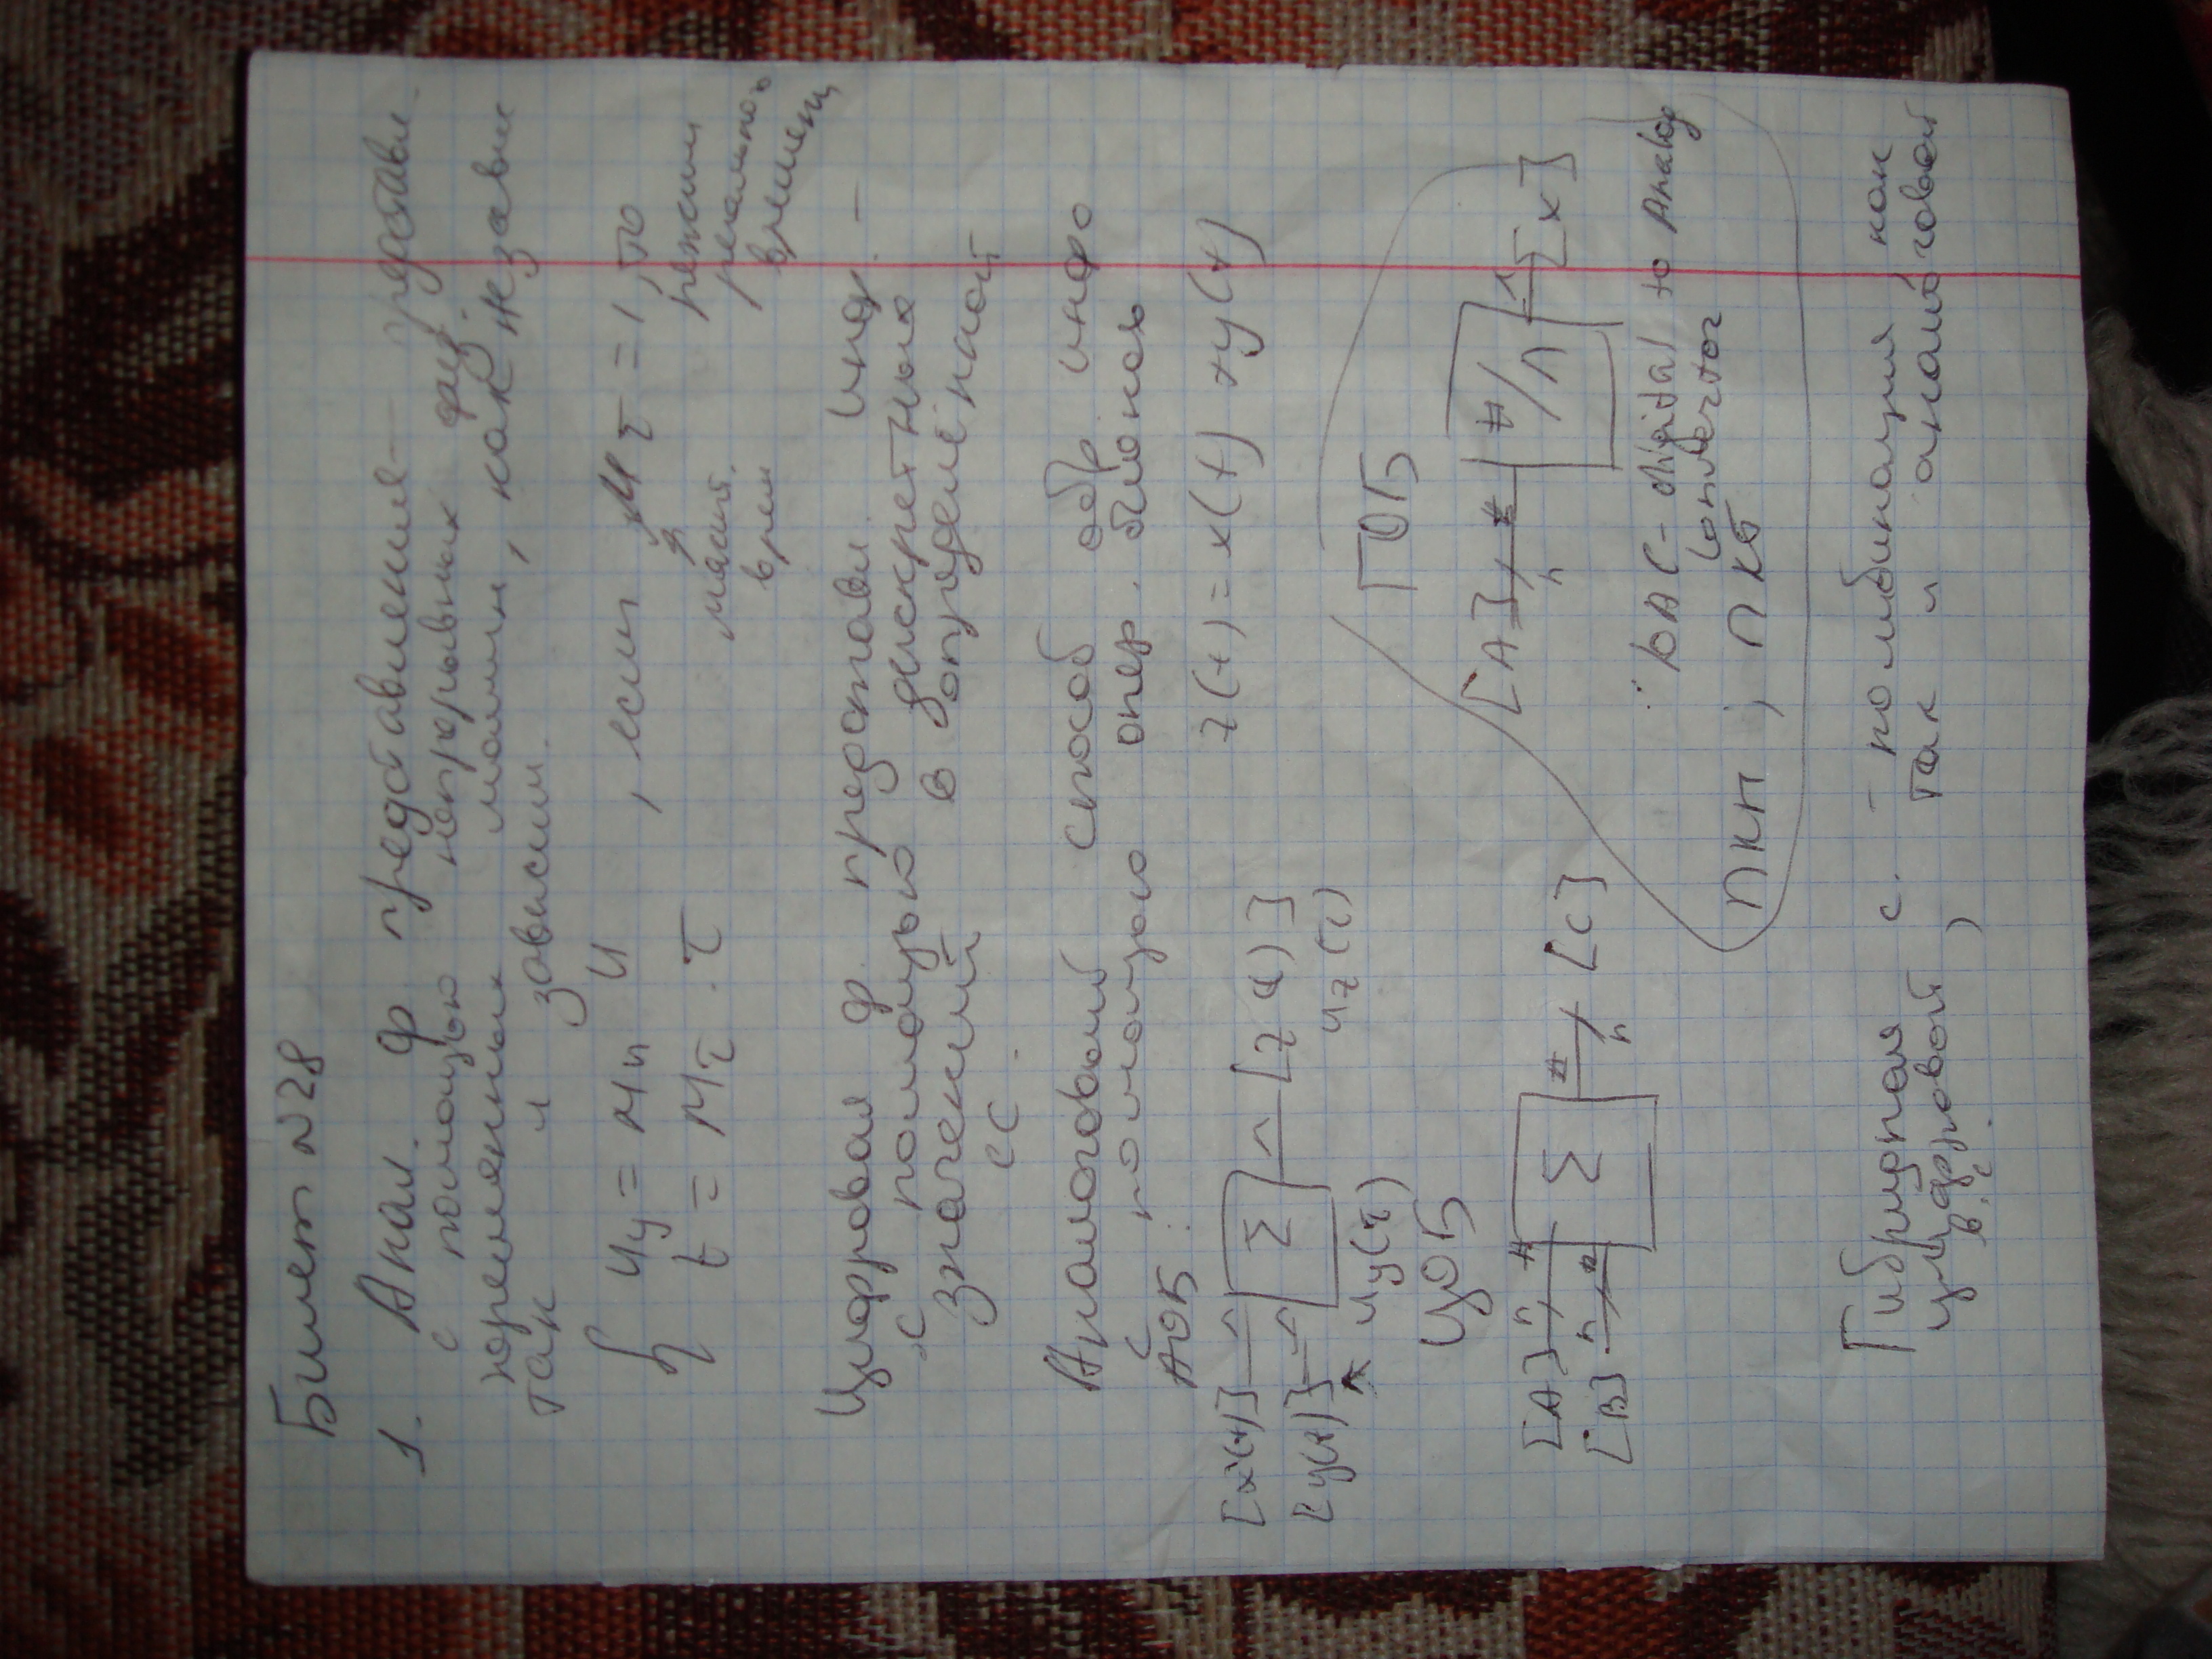 Билет №28
1. Анал. ф. представления - представл.
с помощью непрерывных физ.
переменных машин, как независ
так и зависим.
Uу = Mu U, если Mτ = 1, то
t = Mτ · τ
масшт. врем
режим
реального
времени
Цифровая ф. представл. инф. -
с помощью дискретных
значений в определённой
СС.
Аналоговый способ обр. инфо
с помощью опер. блоков
АОБ: z(t) = x(t) + y(t)
[x(t)] Σ [z(t)]
[y(t)] Uz(τ)
Uy(τ)
ЦОБ
[A] n # Σ # n [C]
[B] n #
ГОБ
[A] # n #/Λ Λ [x]
DAC - digital to Analog
convertor
ПКП; ПКБ
Гибридная с. - комбинация как
цифровой, так и аналоговой
в.с.